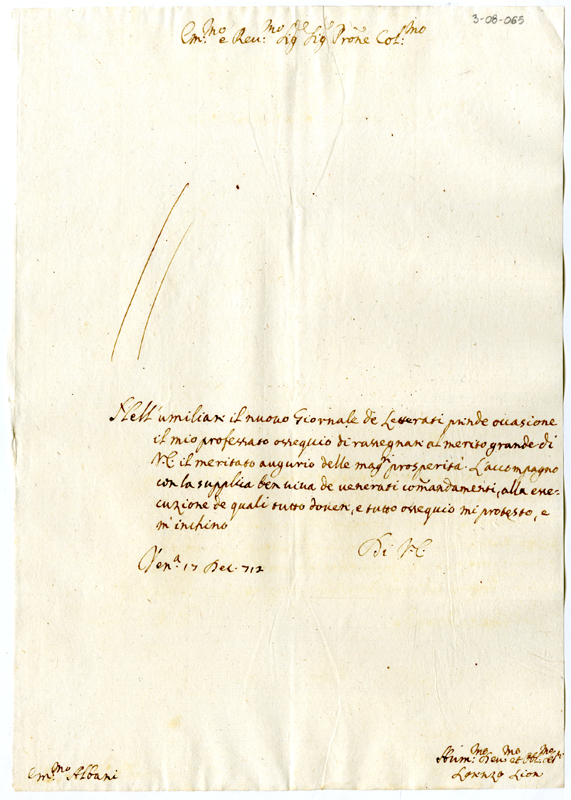 3-08-065
Em:mo e Reu:mo Sig:e Sig:e Prõne Col:mo
Nell'umiliar il nuouo Giornale de Letterati prende occasione
il mio professato ossequio di rassegnar al merito grande di
V.E. il meritato augurio delle magri prosperità. L'accompagno
con la supplica ben uiua de uenerati com̃andamenti, alla ese-
cuzione de quali tutto douer, e tutto ossequio mi protesto, e
m'inchino
Di V.E.
Ven:a 17 Dec. 712
Em:mo Albani
Hum:mo Deu:mo et
Lorenzo Lion